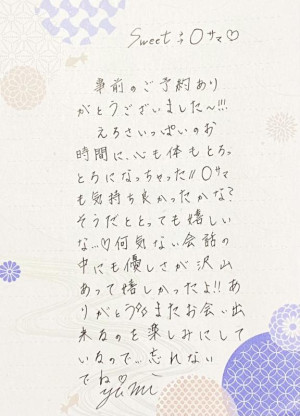 Sweetな〇サマ♡
事前のご予約あり
がとうございました〜!!!
えろさいっぱいのお
時間に、心も体もとろっ
とろになっちゃった!!〇サマ
も気持ち良かったかな?
そうだととっても嬉しい
な…♡何気ない会話の
中にも優しさが沢山
あって嬉しかったよ!!あ
りがとう。またお会い出
来るのを楽しみにして
いるので…忘れない
でね♡
yumi